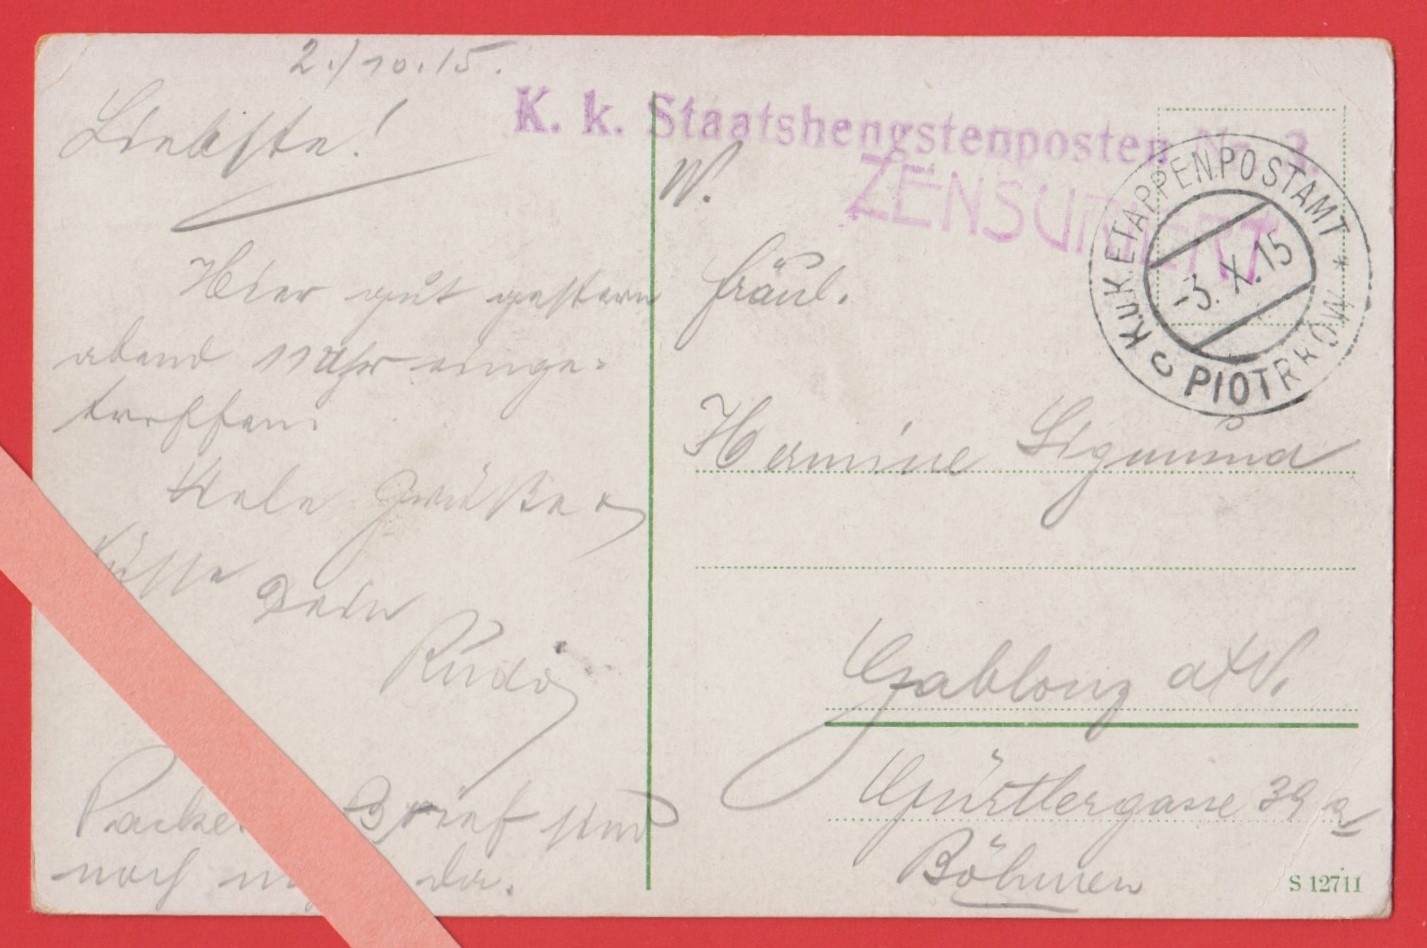 2./10.15.
Liebste!
Hier gut gestern
abend 11 Uhr einge-
troffen.
Viele Grüße u
Küsse Dein
Rudi
Brief sind
noch da.
K. k. Staatshengstenposten Nr. 3.
ZENSURIERT
K.U.K. ETAPPENPOSTAMT * PIOTRKÓW C
-3.X.15
W.
Fräul.
Hermine Sigmund
Gablonz a/N.
Gürtlergasse 39a
Böhmen
S 12711